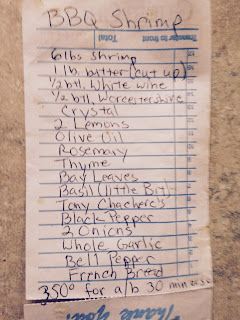 BBQ Shrimp
Transfer to front
Total
6lbs shrimp
1 lb butter (cut up)
1/2 btl. White wine
1/2 btl. Worcestershire
Crystal
2 Lemons
Olive Oil
Rosemary
Thyme
Bay Leaves
Basil (little Bit)
Tony Chachere's
Black Pepper
2 Onions
Whole Garlic
Bell Pepper
French Bread
350° for a/b 30 min
Thank you!